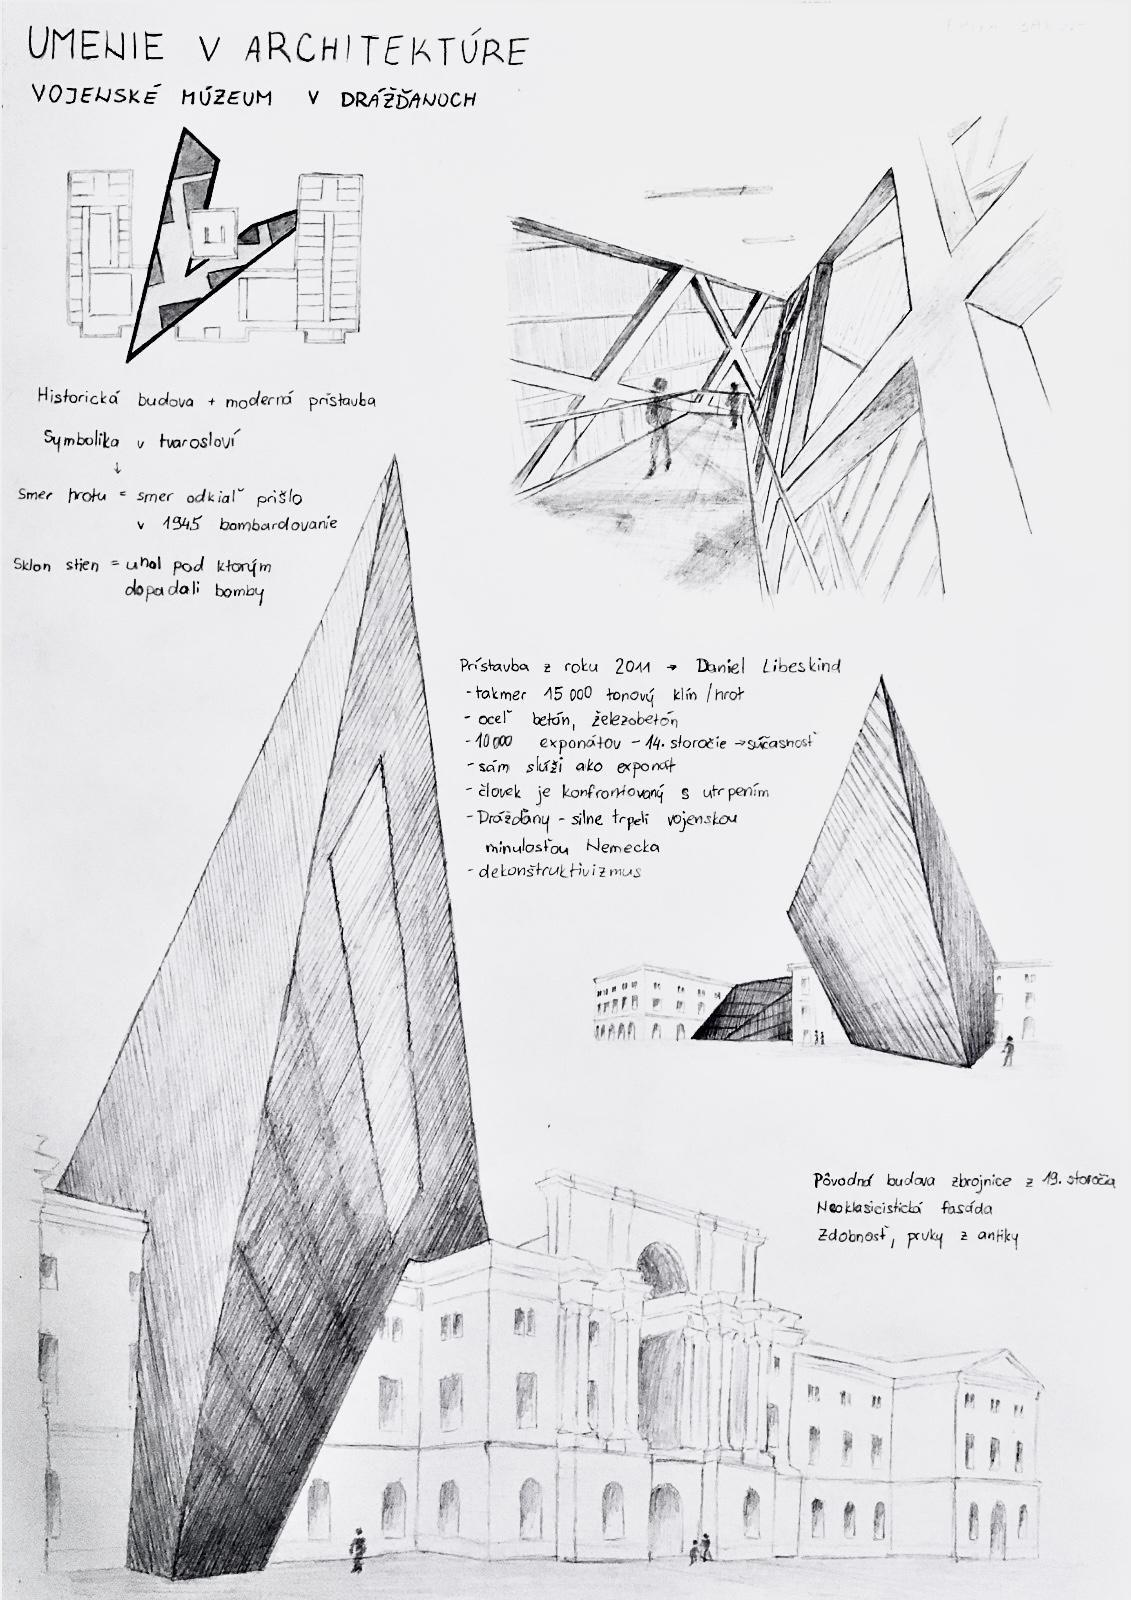 UMENIE V ARCHITEKTÚRE
VOJENSKÉ MÚZEUM V DRÁŽĎANOCH
Historická budova + moderná prístavba
Symbolika v tvarosloví
↓
Smer hrotu = smer odkiaľ prišlo
v 1945 bombardovanie
Sklon stien = uhol pod ktorým
dopadali bomby
Prístavba z roku 2011 → Daniel Libeskind
- takmer 15 000 tonový klín / hrot
- oceľ betón, železobetón
- 10 000 exponátov - 14. storočie → súčasnosť
- sám slúži ako exponát
- človek je konfrontovaný s utrpením
- Drážďany - silne trpeli vojenskou
minulosťou Nemecka
- dekonštruktivizmus
Pôvodná budova zbrojnice z 19. storočia
Neoklasicistická fasáda
Zdobnosť, prvky z antiky